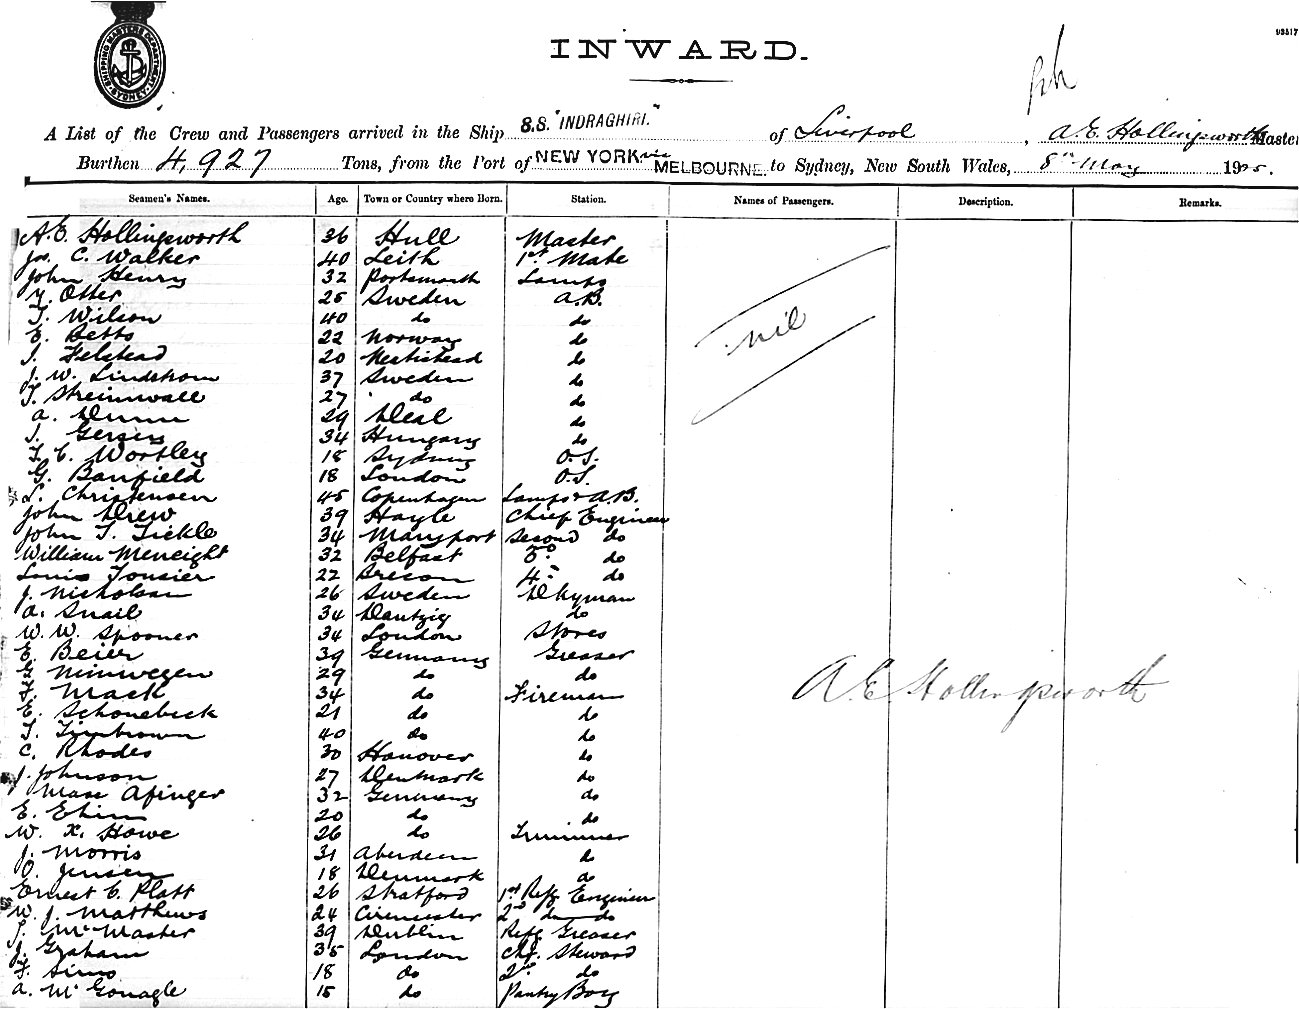 SHIPPING MASTERS DEPARTMENT SYDNEY
INWARD.
93517
A List of the Crew and Passengers arrived in the Ship S.S. "INDRAGHIRI." of Liverpool, A.E. Hollingsworth Master
Burthen 4,927 Tons, from the Port of NEW YORK via MELBOURNE. to Sydney, New South Wales, 8th May 1905.
Seamen's Names. Age. Town or Country where Born. Station. Names of Passengers. Description. Remarks.
A.E. Hollingsworth 36 Hull Master
Jas. C. Walker 40 Leith 1st Mate
John Henry 32 Portsmouth Lamps
Y. Otter 25 Sweden A.B.
T. Wilson 40 do do
nil
E. Betts 22 Norway do
J. Felstead 20 do
J. W. Lindstrom 37 Sweden do
T. Streimwall 27 do do
A. Dunn 29 Deal do
J. Gergen 34 Hungary do
T. C. Wortley 18 Sydney O.S.
G. Banfield 18 London O.S.
L. Christensen 45 Copenhagen Lamps & A.B.
John Drew 39 Hayle Chief Engineer
John T. Tickle 34 Maryport Second do
William Meneight 32 Belfast 3rd do
Louis Tousier 22 Brecon 4th do
J. Nicholson 26 Sweden Dkyman
A. Snail 34 Dantzig do
W. W. Spooner 34 London Stores
E. Beier 39 Germany Greaser
G. Nimwegen 29 do do
F. Mack 34 do Fireman
A E Hollingsworth
E. Schonebeck 21 do do
T. Timbrown 40 do do
C. Rhodes 30 Hanover do
J. Johnson 27 Denmark do
Max Afinger 32 Germany do
E. Ehim 20 do do
W. X. Howe 26 do Trimmer
J. Morris 31 Aberdeen do
O. Jensen 18 Denmark do
Ernest C. Platt 26 Stratford 1st Refg Engineer
W. J. Matthews 24 Cirencester 2nd do do
S. McMaster 39 Dublin Refg Greaser
J. Graham 35 London Chf. Steward
F. Sims 18 do 2nd do
A. McGonagle 15 do Pantry Boy